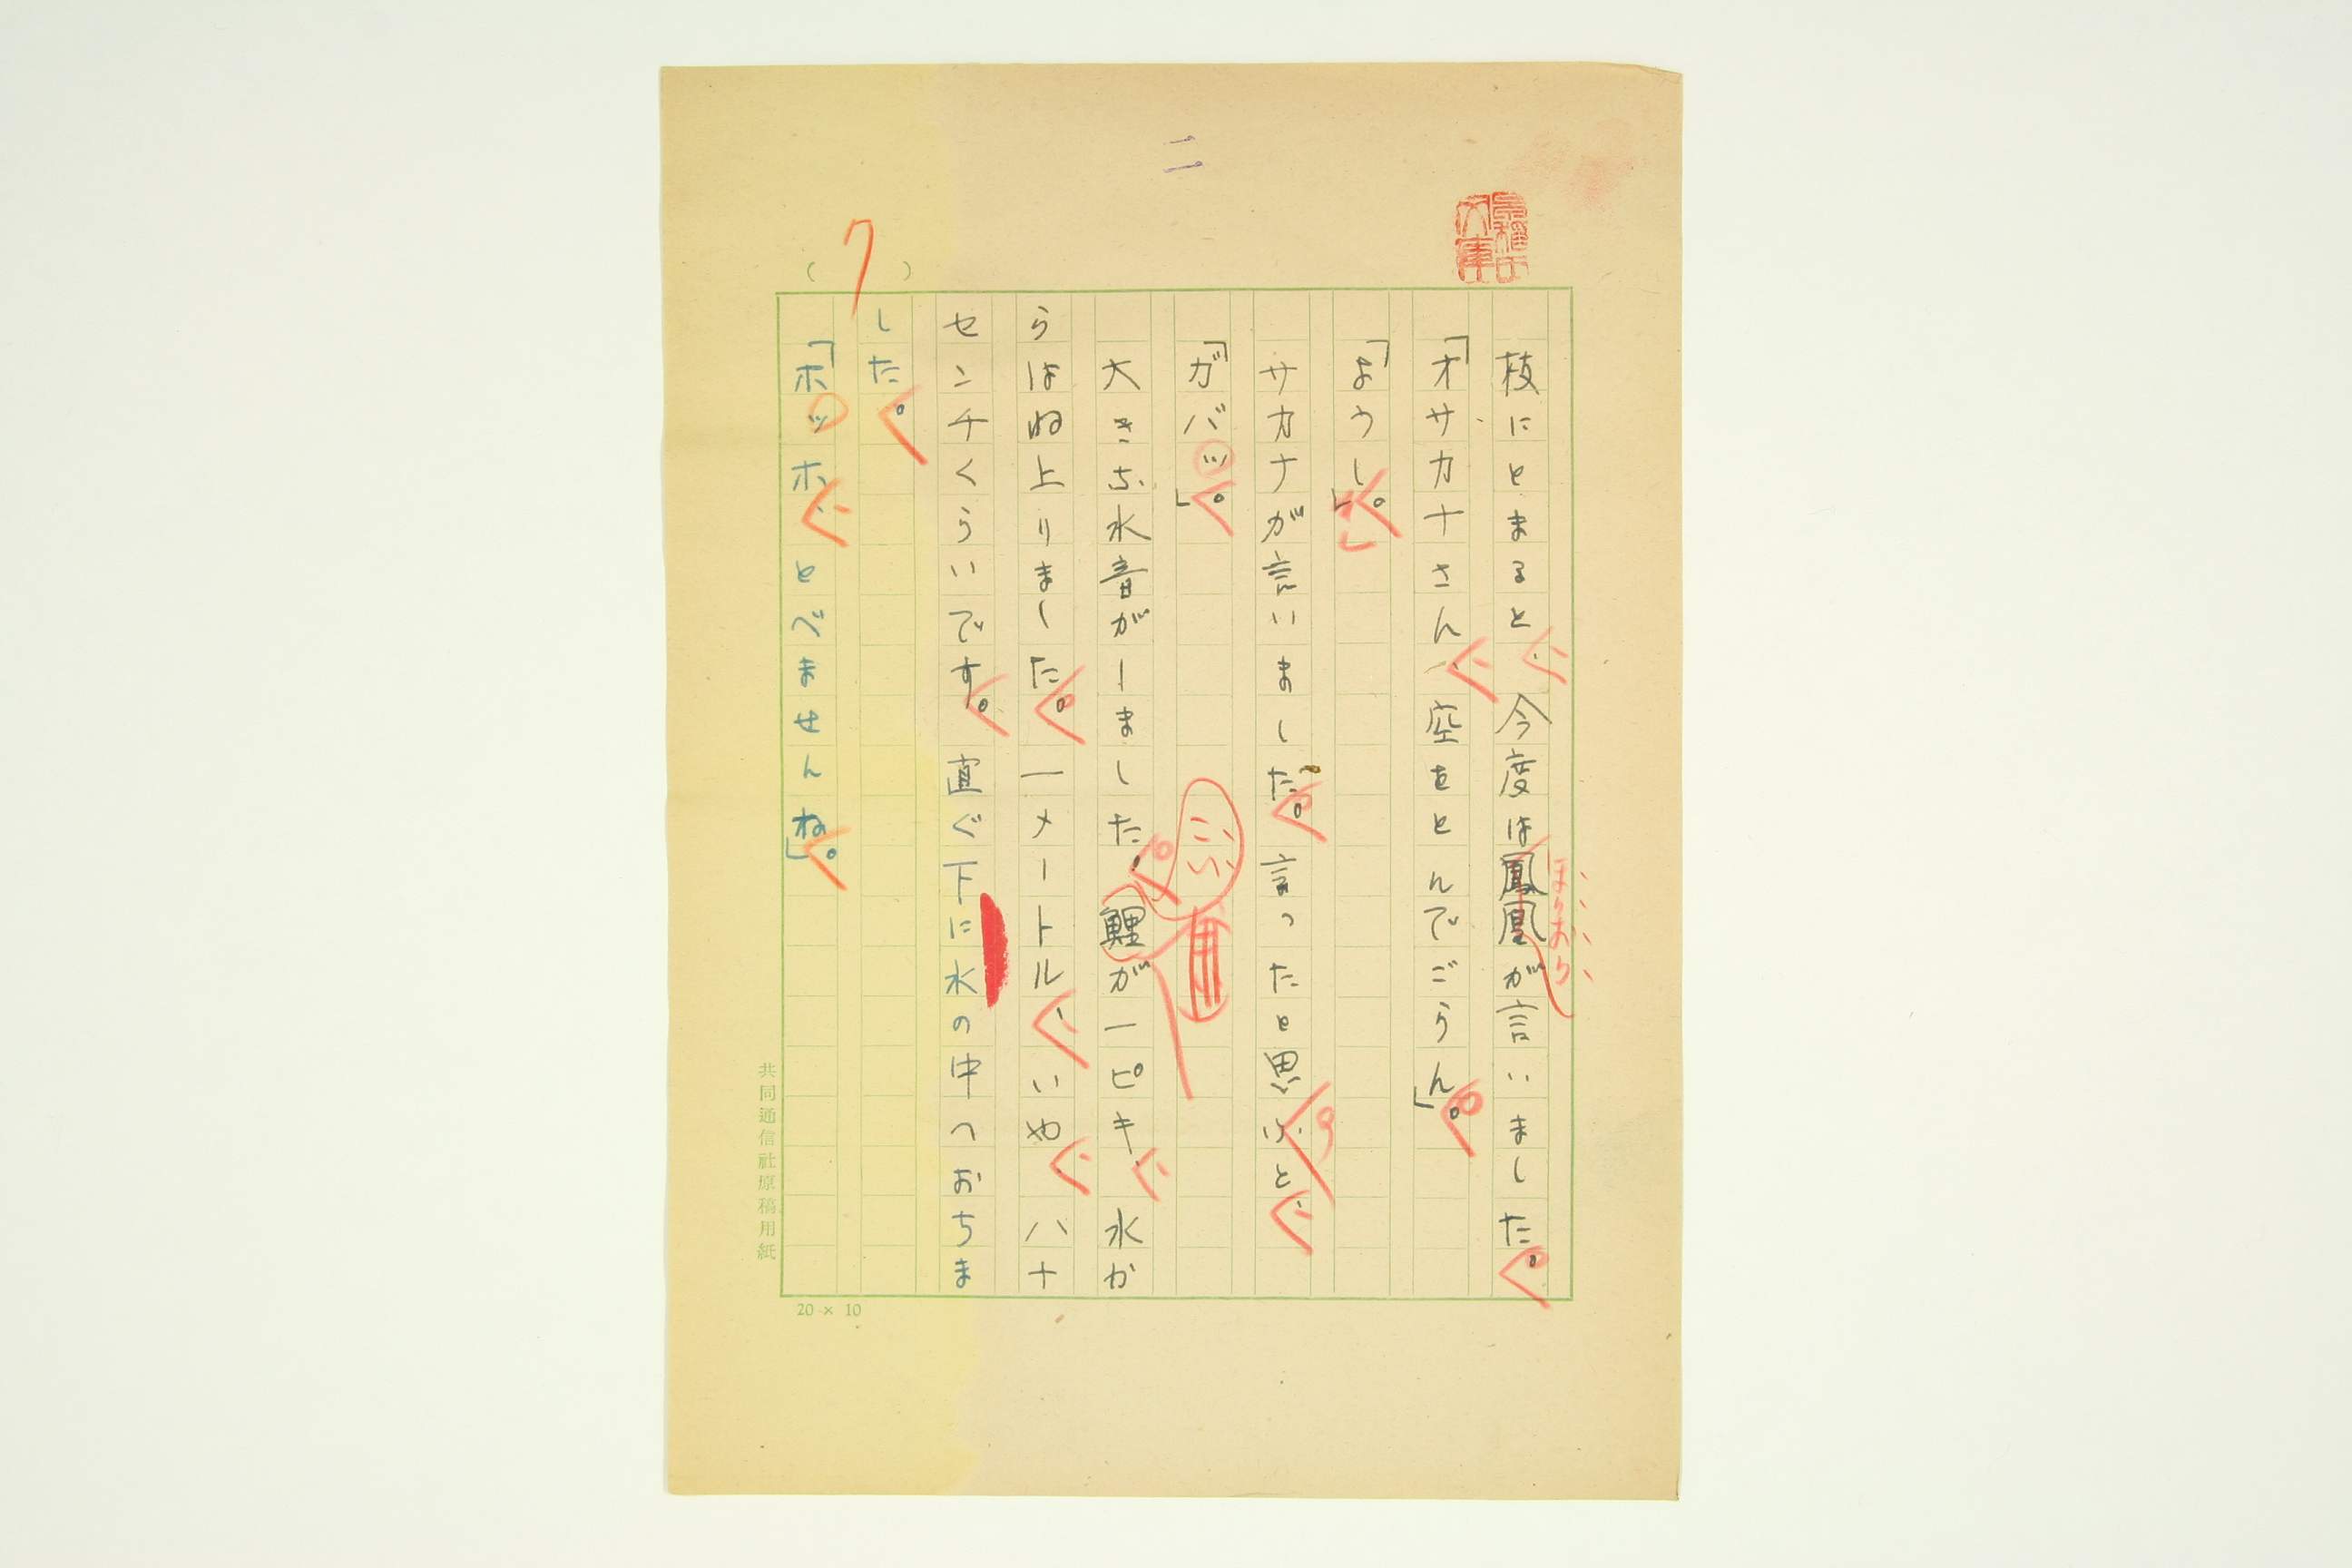 二
早稲田文庫
枝にとまると、今度は鳳凰が言いました。
ほうおう
「オサカナさん、空をとんでごらん。」
「ようし。」
サカナが言いました。言ったと思ふと、
う
「ガバッ。」
こい
大きな水音がしました。鯉が一ピキ、水か
らはね上りました。一メートル、いや、八十
センチくらいです。直ぐ下に水の中へおちま
した。
「ホッホ、とべませんね。」
(7)
共同通信社原稿用紙
20 × 10